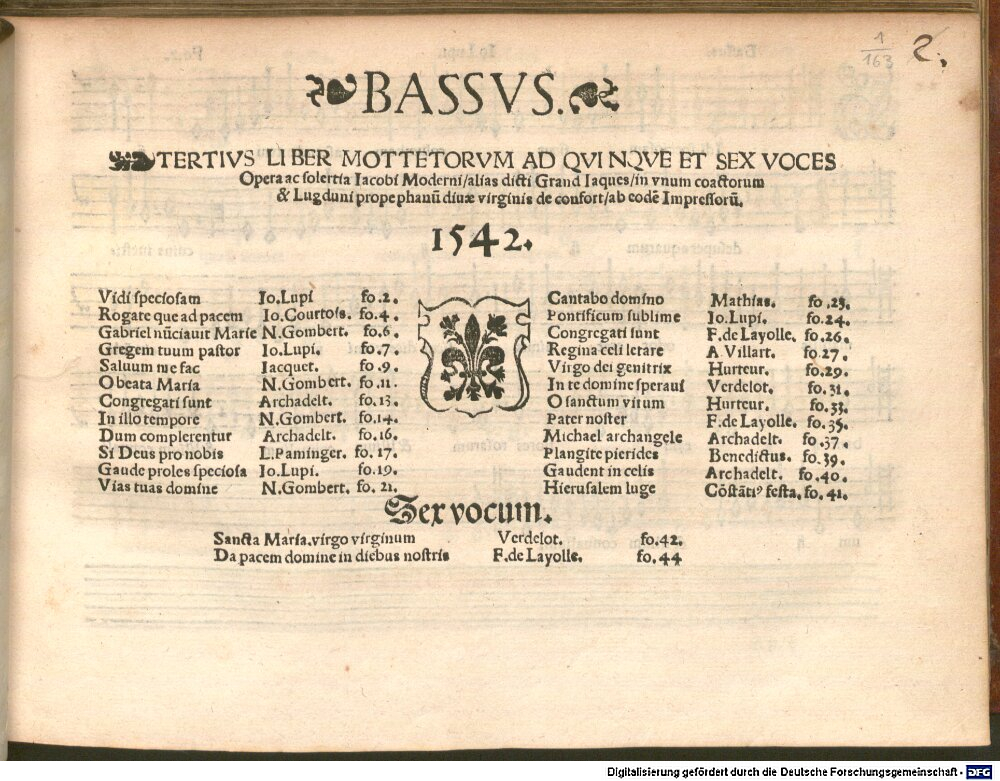 1
163
2.
BASSVS.
TERTIVS LIBER MOTTETORVM AD QVINQVE ET SEX VOCES
Opera ac solertia Iacobi Moderni/alias dicti Grand Iaques/in vnum coactorum
& Lugduni prope phanū diuæ virginis de confort/ab eodē Impressorū.
1542.
Vidi speciosam Io.Lupi fo.2.
Rogate que ad pacem Io.Courtois. fo.4.
Gabriel nūciauit Marie N.Gombert. fo.6.
Gregem tuum pastor Io.Lupi. fo.7.
Saluum me fac Iacquet. fo.9.
O beata Maria N.Gombert. fo.11.
Congregati sunt Archadelt. fo.13.
In illo tempore N.Gombert. fo.14.
Dum complerentur Archadelt. fo.16.
Si Deus pro nobis L.Paminger. fo.17.
Gaude proles speciosa Io.Lupi. fo.19.
Vias tuas domine N.Gombert. fo.21.
Cantabo domino Mathias. fo.23.
Pontificum sublime Io.Lupi. fo.24.
Congregati sunt F.de Layolle. fo.26.
Regina celi letare A Villart. fo.27.
Virgo dei genitrix Hurteur. fo.29.
In te domine speraui Verdelot. fo.31.
O sanctum virum Hurteur. fo.33.
Pater noster F.de Layolle. fo.35.
Michael archangele Archadelt. fo.37.
Plangite pierides Benedictus. fo.39.
Gaudent in celis Archadelt. fo.40.
Hierusalem luge Cōstātiꝰ festa. fo.41.
Sex vocum.
Sancta Maria.virgo virginum Verdelot. fo.42.
Da pacem domine in diebus nostris F.de Layolle. fo.44
Digitalisierung gefördert durch die Deutsche Forschungsgemeinschaft - DFG